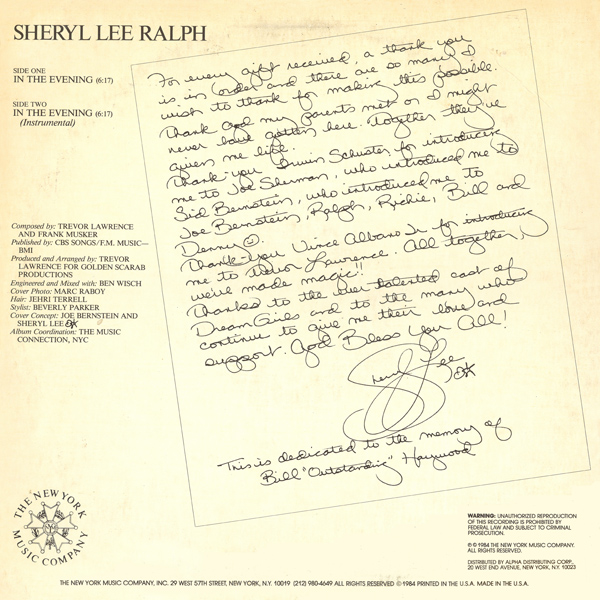 SHERYL LEE RALPH
SIDE ONE
IN THE EVENING (6:17)
SIDE TWO
IN THE EVENING (6:17)
(Instrumental)
Composed by: TREVOR LAWRENCE
AND FRANK MUSKER
Published by: CBS SONGS/F.M. MUSIC—
BMI
Produced and Arranged by: TREVOR
LAWRENCE FOR GOLDEN SCARAB
PRODUCTIONS
Engineered and Mixed with: BEN WISCH
Cover Photo: MARC RABOY
Hair: JEHRI TERRELL
Stylist: BEVERLY PARKER
Cover Concept: JOE BERNSTEIN AND
SHERYL LEE
Album Coordination: THE MUSIC
CONNECTION, NYC
For every gift received, a thank you
is in order and there are so many I
wish to thank for making this possible.
Thank God my parents met or I might
never have gotten here. Together they've
given me life.
Thank-you Irwin Schuster for introducing
me to Joe Sherman, who introduced me to
Sid Bernstein, who introduced me to
Joe Bernstein, Ralph, Richie, Bill and
Denny
Thank-you Vince Albano Jr. for introducing
me to Trevor Lawrence. All together,
we've made magic!!
Thanks to the ever talented cast of
DreamGirls and to the many who
continue to give me their love and
support. God Bless You All!
Sheryl Lee
This is dedicated to the memory of
Bill "Outstanding" Haywood
THE NEW YORK
MUSIC COMPANY
WARNING: UNAUTHORIZED REPRODUCTION
OF THIS RECORDING IS PROHIBITED BY
FEDERAL LAW AND SUBJECT TO CRIMINAL
PROSECUTION.
℗ © 1984 THE NEW YORK MUSIC COMPANY.
ALL RIGHTS RESERVED.
DISTRIBUTED BY ALPHA DISTRIBUTING CORP.,
20 WEST END AVENUE, NEW YORK, N.Y. 10023
THE NEW YORK MUSIC COMPANY, INC. 29 WEST 57TH STREET, NEW YORK, N.Y. 10019 (212) 980-4649 ALL RIGHTS RESERVED © 1984 PRINTED IN THE U.S.A. MADE IN THE U.S.A.